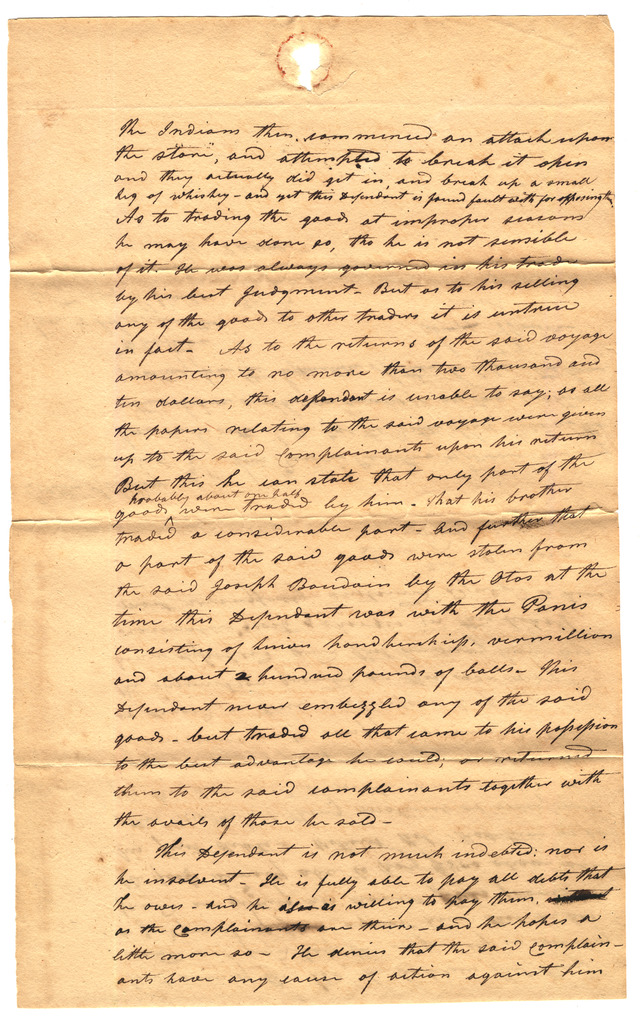 the Indians then commenced an attack upon
the store, and attempted to break it open
and they actually did get in, and break up a small
keg of whiskey - and yet this Defendant is found fault with for opposing th
As to trading the goods at improper seasons
he may have done so, tho he is not sensible
of it. He was always governed in his trade
by his best Judgment - But as to his selling
any of the goods to other traders it is untrue
in fact - As to the returns of the said voyage
amounting to no more than two thousand and
ten dollars, this defendant is unable to say; as all
the papers relating to the said voyage were given
up to the said Complainants upon his return
But this he can state that only part of the
probably about one half
goods were traded by him - that his brother
traded a considerable part - And further that
a part of the said goods were stolen from
the said Joseph Baudain by the Otos at the
time this Defendant was with the Panis
consisting of knives handkerchiefs, vermillion
and about 2 hundred pounds of balls - This
Defendant never embezzled any of the said
goods - but traded all that came to his possession
to the best advantage he could; or returned
them to the said complainants together with
the avails of those he sold -
This Defendant is not much indebted: nor is
he insolvent - He is fully able to pay all debts that
he owes - and he is willing to pay them,
as the complainants are their - and he hopes a
little more so - He denies that the said Complain-
ants have any cause of action against him